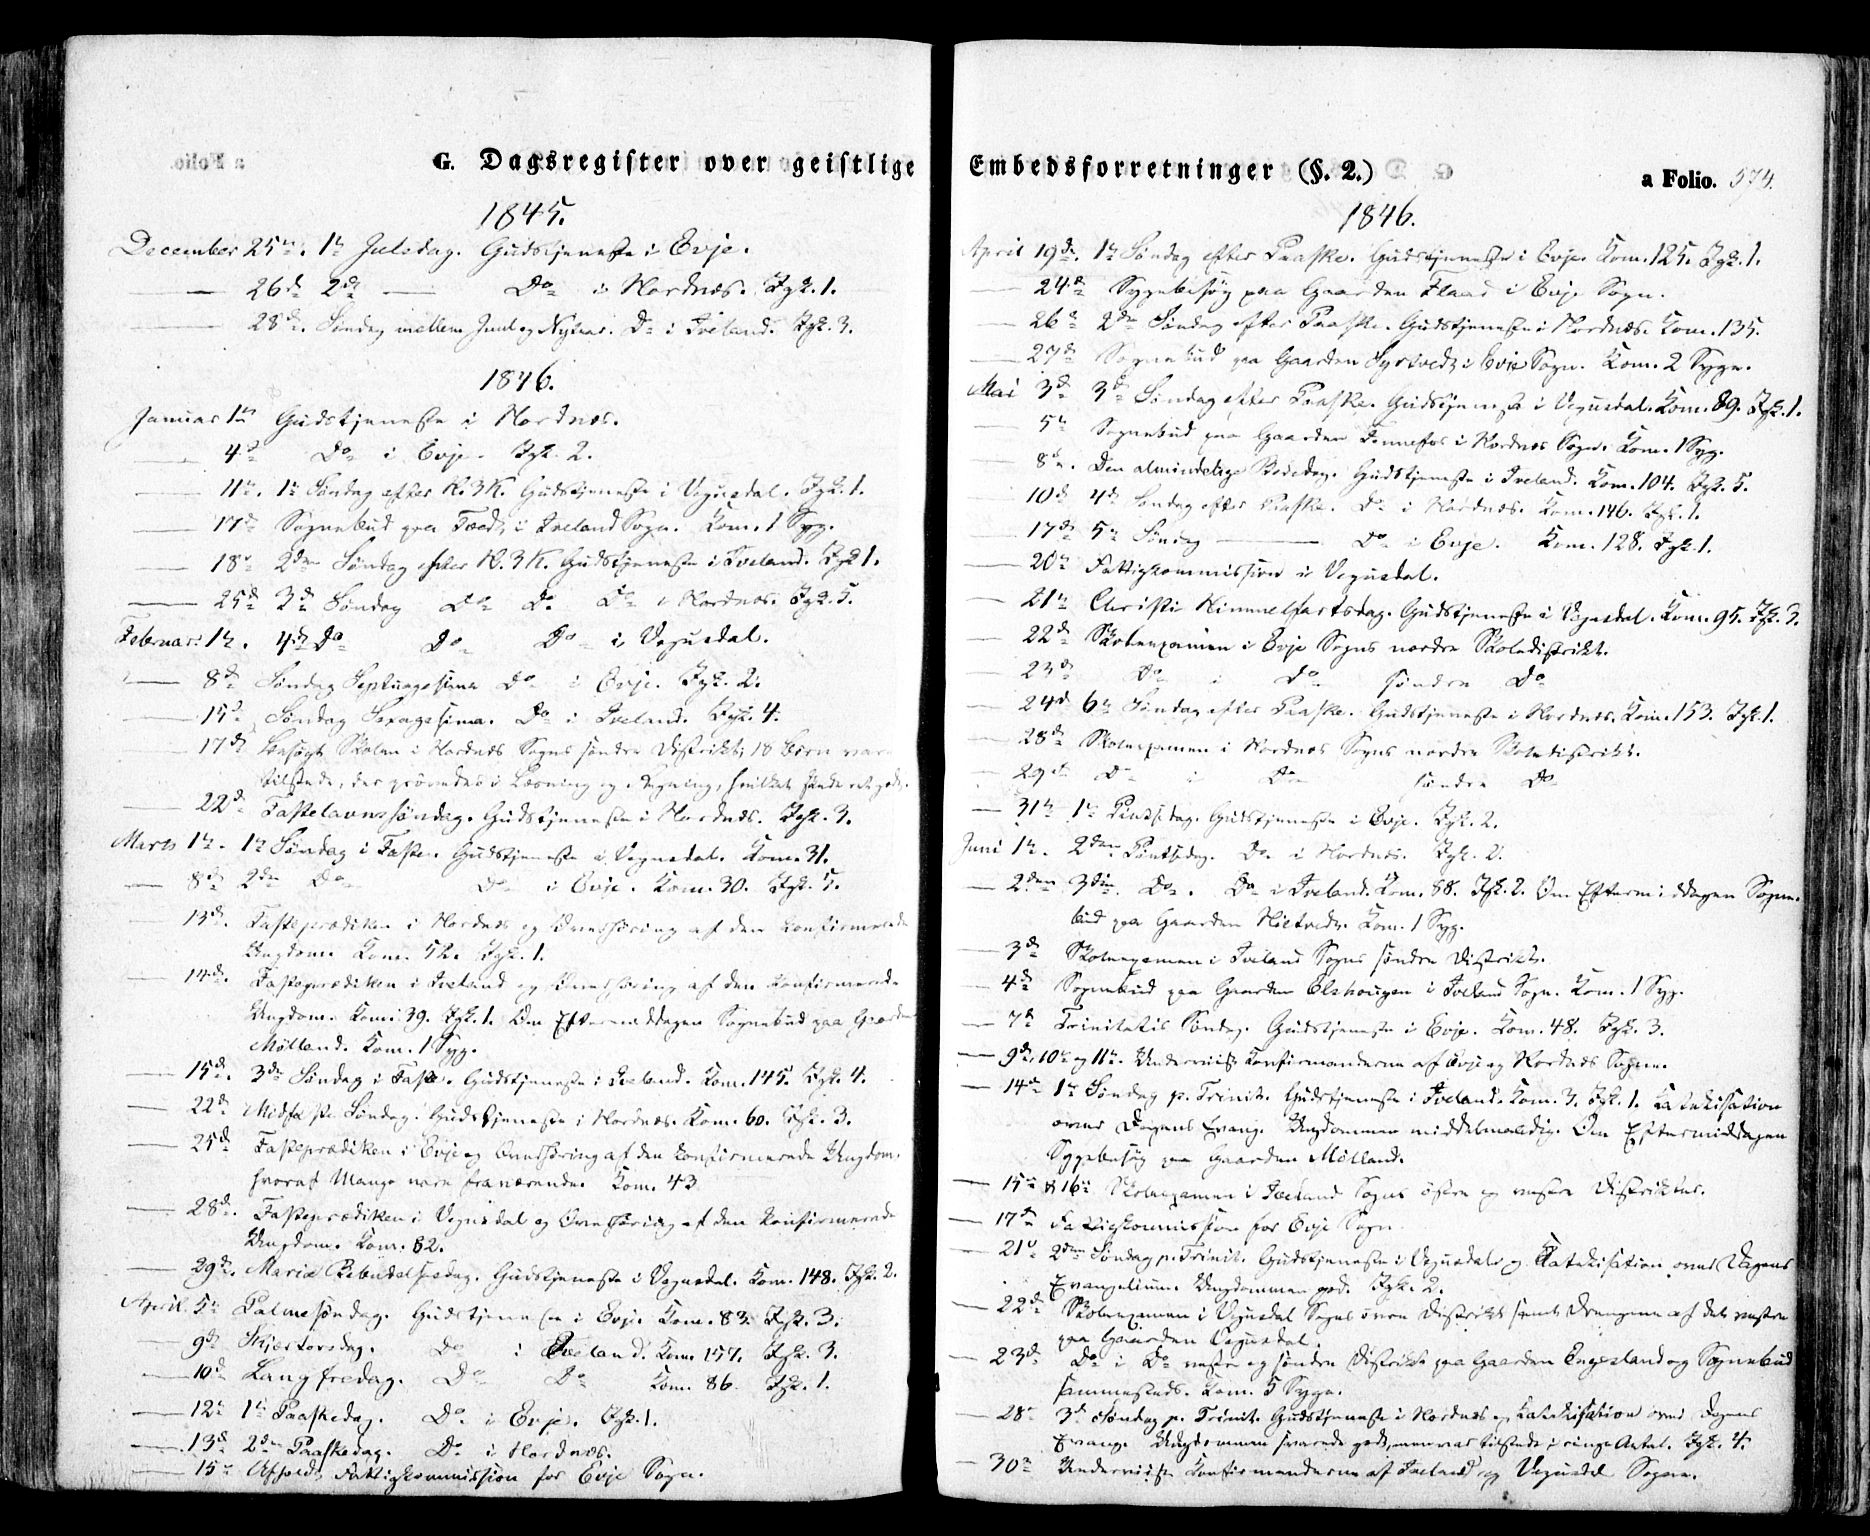 G. Dagsregister over geistlige
1845.
December 25de. 1te Juledag. Gudstjeneste i Evje.
— 26de 2de — Do i Hordnæs. Jgk. 1.
— 28de. Søndag mellem Juul og Nytaar. Do i Iveland. Jgk. 3.
1846.
Januar 1te Gudstjeneste i Hordnæs.
— 4de Do i Evje. Jgk. 2.
— 11te. 1te Søndag efter H. 3 K. Gudstjeneste i Vegusdal. Jgk. 1.
— 17de Sognebud paa i Iveland Sogn. Kom. 1 Syg.
— 18de 2den Søndag efter H. 3 K. Gudstjeneste i Iveland. Jgk 1.
— 25de 3de Søndag Do Do Do i Hordnæs. Jgk. 5.
Februar: 1te. 4de Do Do Do i Vegusdal.
— 8de Søndag Septuagesima Do i Evje. Jgk. 2.
— 15de Søndag Sexagesima. Do i Iveland. Jgk. 4.
— 17de Besøgt Skolen i Hordnæs Sogns søndre Distrikt; 18 Børn vare
tilstede, der prøvedes i Læsning og Regning, hvilket
— 22de Fastelavnssøndag. Gudstjeneste i Hordnæs. Jgk. 3.
Marts 1te. 1te Søndag i Faste. Gudstjeneste i Vegusdal. Kom. 31.
— 8de 2den Do Do i Evje. Kom. 30. Jgk. 5.
— 13de. Fasteprædiken i Hordnæs og Overhøring af den konfirmerede
Ungdom. Kom. 52. Jgk. 1.
— 14de. Fasteprædiken i Iveland og Overhøring af den konfirmerede
Ungdom. Kom. 39. Jgk. 1. Om Eftermiddagen Sognebud paa Gaarden
Mølland. Kom. 1 Syg.
— 15de. 3de Søndag i Faste. Gudstjeneste i Iveland. Kom. 145. Jgk. 4.
— 22de Midfaste Søndag. Gudstjeneste i Hordnæs. Kom. 60. Jgk. 3.
— 25de Fasteprædiken i Evje og Overhøring af den konfirmerede Ungdom,
hvoraf Mange vare fraværende. Kom. 43
— 28de. Fasteprædiken i Vegusdal og Overhøring af den konfirmerede
Ungdom. Kom. 82.
— 29de. Mariæ Bebudelsesdag. Gudstjeneste i Vegusdal. Kom. 148. Jgk. 2.
April. 5te Palmesøndag. Gudstjeneste i Evje. Kom. 83. Jgk. 3.
— 9de Skjærtorsdag. Do i Iveland. Kom. 157. Jgk. 3.
— 10de Langfredag. Do Do Kom. 86. Jgk. 1.
— 12te 1te Paaskedag. Do i Evje. Jgk. 1.
— 13de 2den Paaskedag. Do i Hordnæs.
— 15de Afholdt Fattigkommission for Evje Sogn.
Embedsforretninger (§. 2.)
a Folio. 574.
1846.
April 19de. 1te Søndag efter Paaske. Gudstjeneste i Evje. Kom. 125. Jgk. 1.
— 24de Sygebesøg paa Gaarden Flaad i Evje Sogn.
— 26de 2den Søndag efter Paaske. Gudstjeneste i Hordnæs. Kom. 135.
— 27de Sognebud paa Gaarden Syrtvedt i Evje Sogn. Kom. 2 Syge.
Mai 3de 3de Søndag efter Paaske. Gudstjeneste i Vegusdal. Kom. 89. Jgk. 1.
— 5te Sognebud paa Gaarden Fennefos i Hordnæs Sogn. Kom. 1 Syg.
— 8de. Den almindelige Bededag. Gudstjeneste i Iveland. Kom. 104. Jgk. 5.
— 10de 4de Søndag efter Paaske. Do i Hordnæs. Kom. 146. Jgk. 1.
— 17de 5te Søndag — Do i Evje. Kom. 128. Jgk. 1.
— 20de Fattigkommission i Vegusdal.
— 21de Christi Himmelfartsdag. Gudstjeneste i Vegusdal. Kom. 95. Jgk. 3.
— 22de Skoleexamen i Evje Sogns nordre Skoledistrikt.
— 23de Do i Do søndre Do
— 24de 6te Søndag efter Paaske. Gudstjeneste i Hordnæs. Kom. 153. Jgk. 1.
— 28de Skoleexamen i Hordnæs Sogns nordre Skoledistrikt.
— 29de Do i Do søndre Do
— 31te 1te Pintsedag. Gudstjeneste i Evje. Jgk. 2.
Juni 1te. 2den Pintsedag. Do i Hordnæs. Jgk. 2.
— 2den 3die. Do. Do i Iveland. Kom. 88. Jgk. 2. Om Eftermiddagen Sogne-
bud paa Gaarden Hiltvedt. Kom. 1 Syg.
— 3de Skoleexamen i Iveland Sogns søndre Distrikt.
— 4de Sognebud paa Gaarden Elshougen i Iveland Sogn. Kom. 1 Syg.
— 7de Trinitatis Søndag. Gudstjeneste i Evje. Kom. 48. Jgk. 3.
— 9de, 10de og 11te. Underviist Konfirmanderne af Evje og Hordnæs Sogne.
— 14de 1te Søndag p. Trinit. Gudstjeneste i Iveland. Kom. 3. Jgk. 1. Katekisation
over Dagens Evang. Ungdommen middelmaadig. Om Eftermiddagen
Sygebesøg paa Gaarden Mølland.
— 15de & 16de Skoleexamen i Iveland Sogns østre og vestre Distrikter.
— 17de Fattigkommission for Evje Sogn.
— 21de 2den Søndag p. Trinit. Gudstjeneste i Vegusdal og Katekisation over Dagens
Evangelium. Ungdommen god. Jgk. 2.
— 22de Skoleexamen i Vegusdal Sogns øvre Distrikt samt Drengene af det vestre
paa Gaarden Vegusdal.
— 23de Do i Do vestre og søndre Distrikt paa Gaarden Engesland og Sognebud
sammesteds. Kom. 5 Syge.
— 28de 3de Søndag p. Trinit. Gudstjeneste i Hordnæs og Katekisation over Dagens
Evang. Ungdommen svarede godt, men var tilstede i ringe Antal. Jgk. 4.
— 30te Underviist Konfirmanderne af Iveland og Vegusdal Sogne.